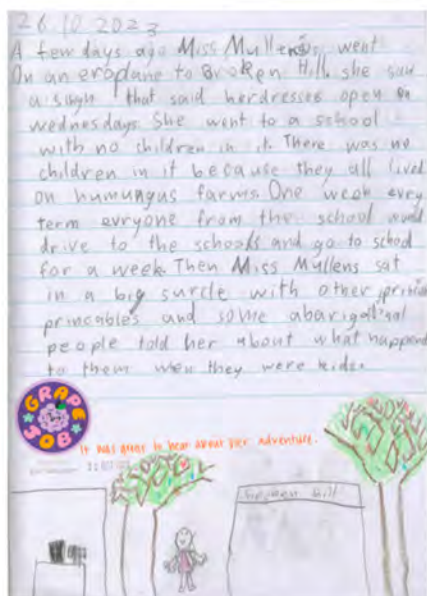 26.10.2023
A few days ago Miss Mullens went
On an eroplane to Broken Hill. she saw
a sighn that said herdresser open on
wednesdays. She went to a school
with no children in it. There was no
children in it because they all lived
on humungus farms. One week evry
term evryone from the school
drive to the schools and go to school
for a week. Then Miss Mullens sat
in a big surcle with other
princables and some
people told her about what happend
to them wen they were kids.
GRAPE JOB
It was great to hear about her adventure.
hill